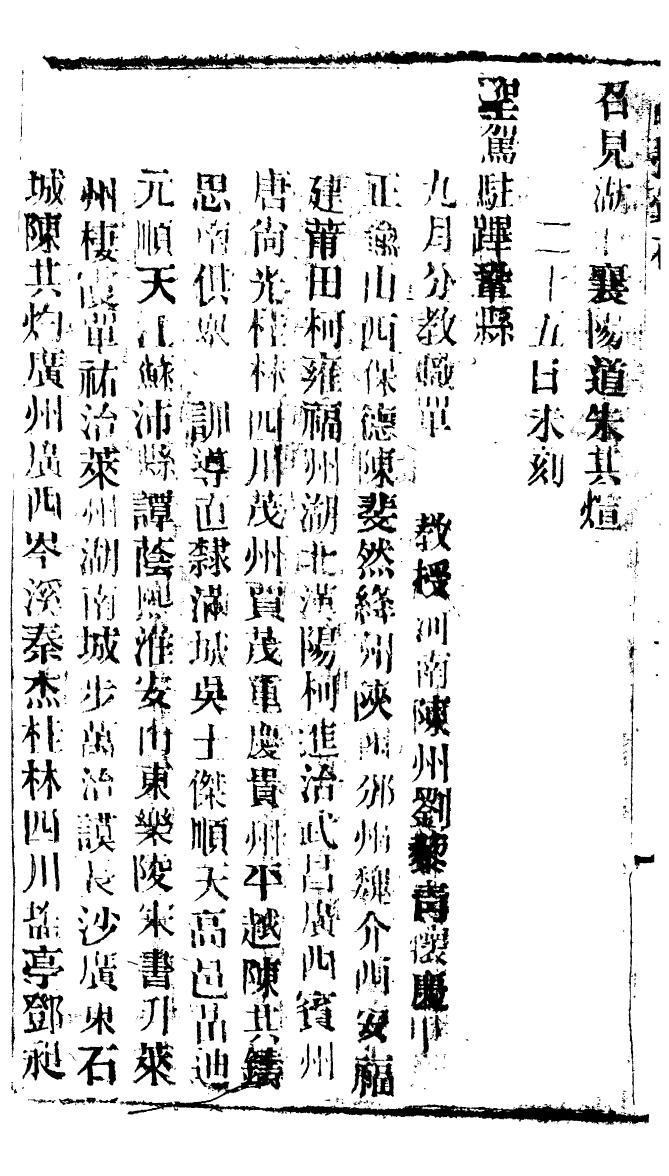 召見湖北襄陽道朱其煊
二十五日未刻
聖駕駐蹕鞏縣
九月分教職單 教授河南陳州劉黎青懷慶甲
正諭山西保德陳斐然絳州陝西邠州魏介西安福
建莆田柯雍福州湖北漢陽柯進治武昌廣西賓州
唐尙光桂林四川茂州買茂重慶貴州平越陳其鑄
思南俱舉 訓導直隸滿城吳士傑順天高邑呂迪
元順天江蘇沛縣譚蔭熙淮安山東樂陵宋書升萊
州棲霞單祐治萊州湖南城步萬治謨長沙廣東石
城陳其灼廣州廣西岑溪秦杰桂林四川鹽亭鄧昶